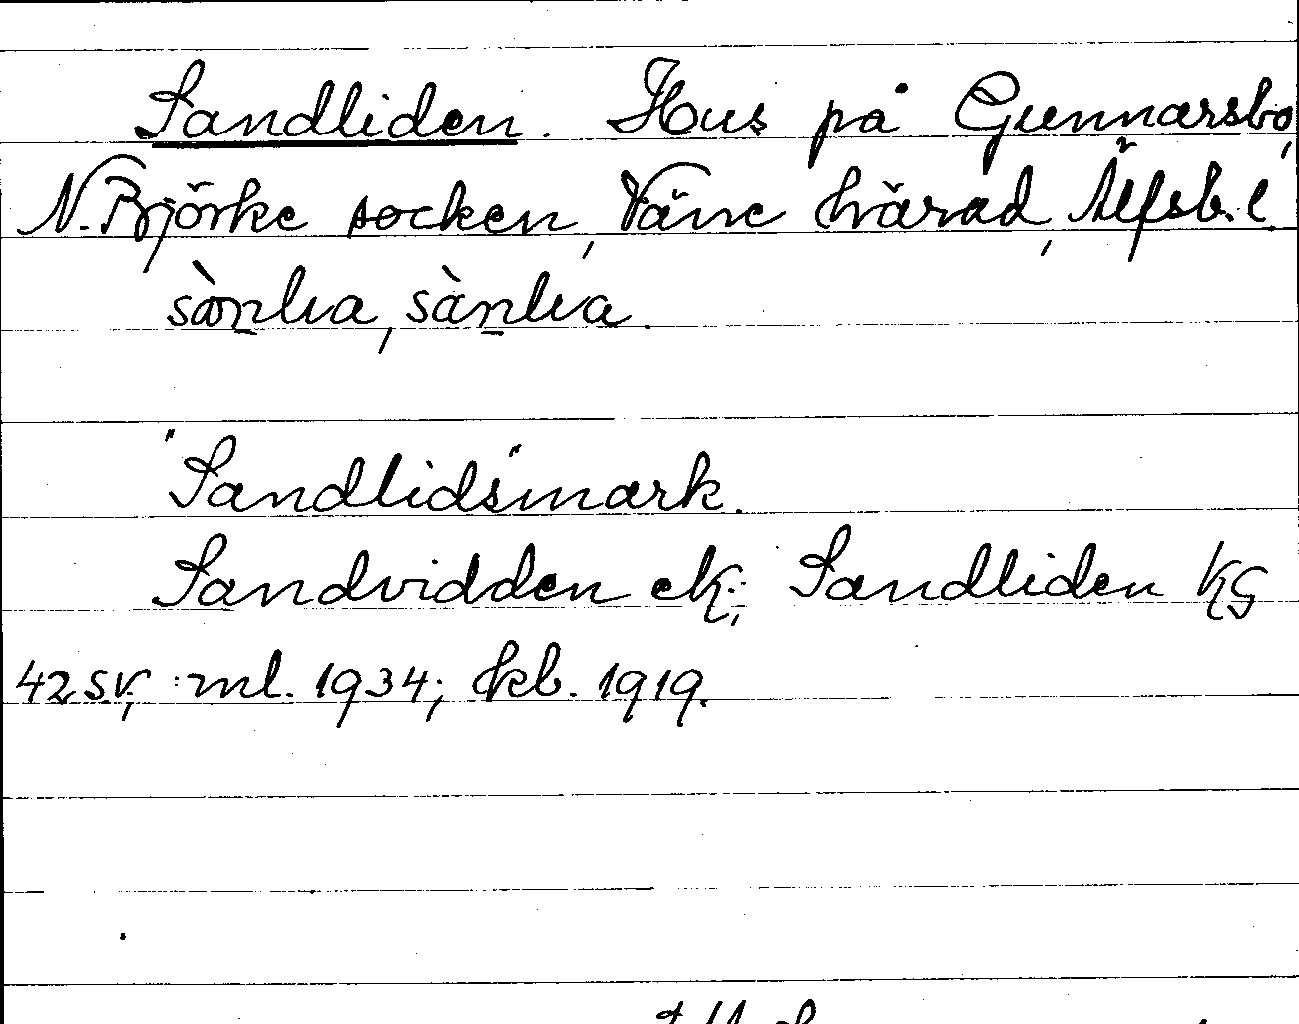 Sandliden. Hus på Gunnarsbo,
N. Björke socken, Väne härad, Älfsb. l.
sànlia, sànlia.
"Sandlids"mark.
Sandvidden ek.; Sandliden KG
42 SV; ml. 1934; kb. 1919.